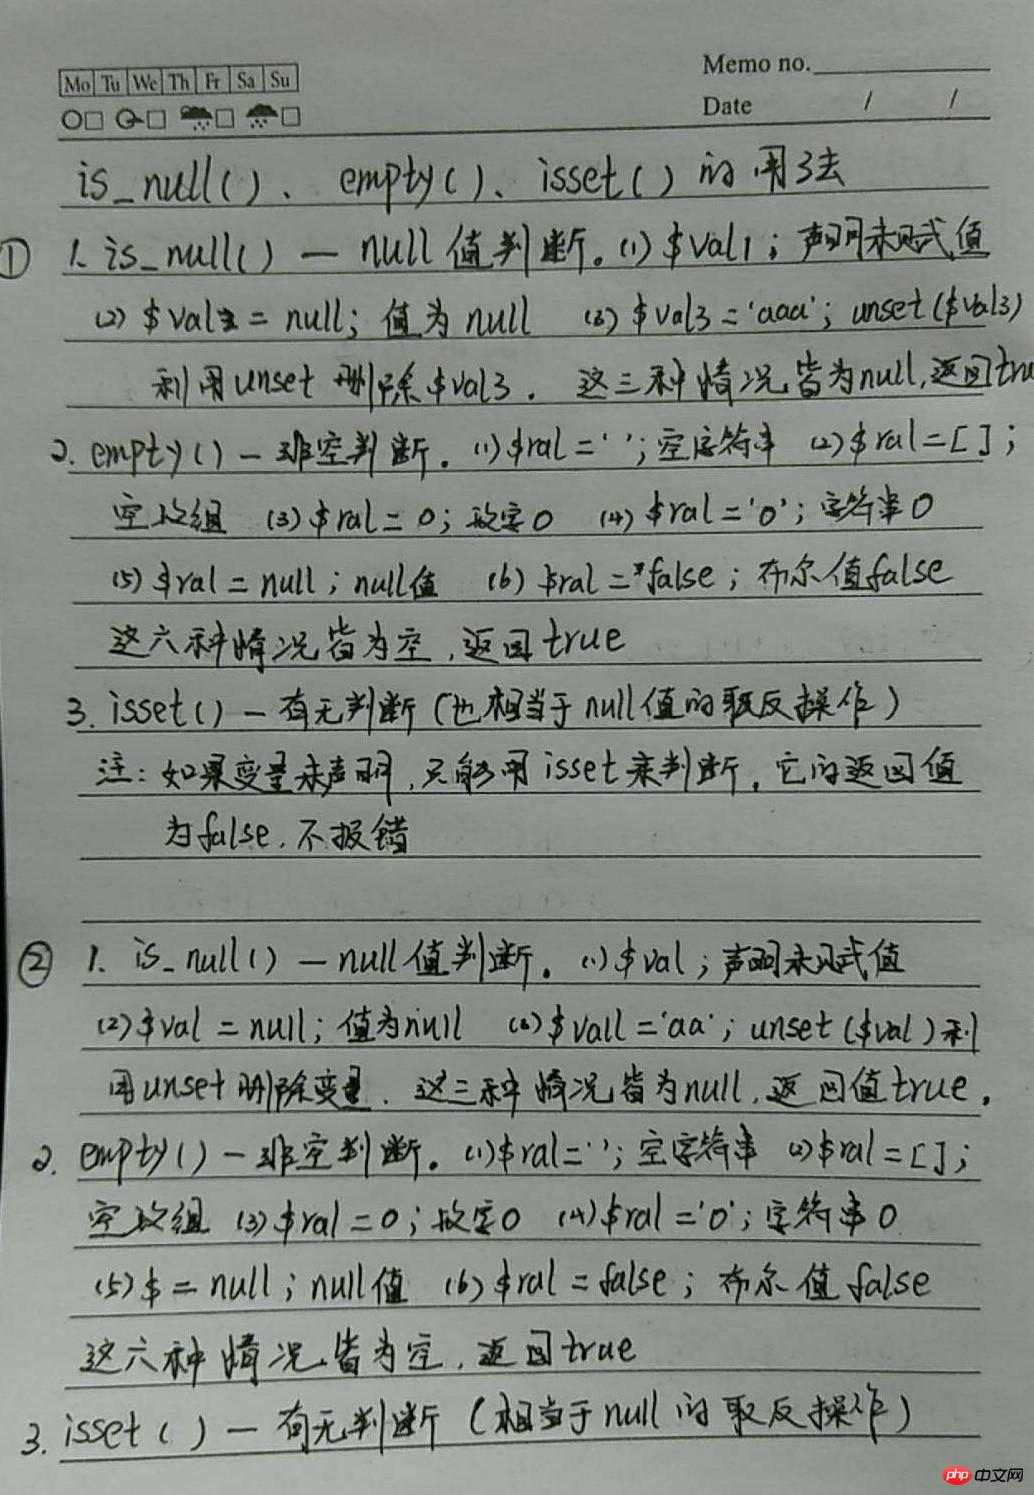 Mo Tu We Th Fr Sa Su
Memo no.
Date / /
is_null()、empty()、isset()的用法
① 1. is_null() — null值判断。(1) $val1；声明未赋值
(2) $val2 = null；值为null (3) $val3 = 'aaa'；unset($val3)
利用unset删除$val3. 这三种情况皆为null,返回tru
2. empty() — 非空判断。(1) $val = ' '；空字符串 (2) $val = []；
空数组 (3) $val = 0；数字0 (4) $val = '0'；字符串0
(5) $val = null；null值 (6) $val = false；布尔值false
这六种情况皆为空,返回true
3. isset() — 有无判断(也相当于null值的取反操作)
注：如果变量未声明,只能用isset来判断,它的返回值
为false,不报错
② 1. is_null() — null值判断。(1) $val；声明未赋值
(2) $val = null；值为null (3) $val1 = 'aa'；unset($val)利
用unset删除变量. 这三种情况皆为null,返回值true.
2. empty() — 非空判断。(1) $val = ''；空字符串 (2) $val = []；
空数组 (3) $val = 0；数字0 (4) $val = '0'；字符串0
(5) $ = null；null值 (6) $val = false；布尔值false
这六种情况皆为空,返回true
3. isset() — 有无判断(相当于null的取反操作)
php中文网